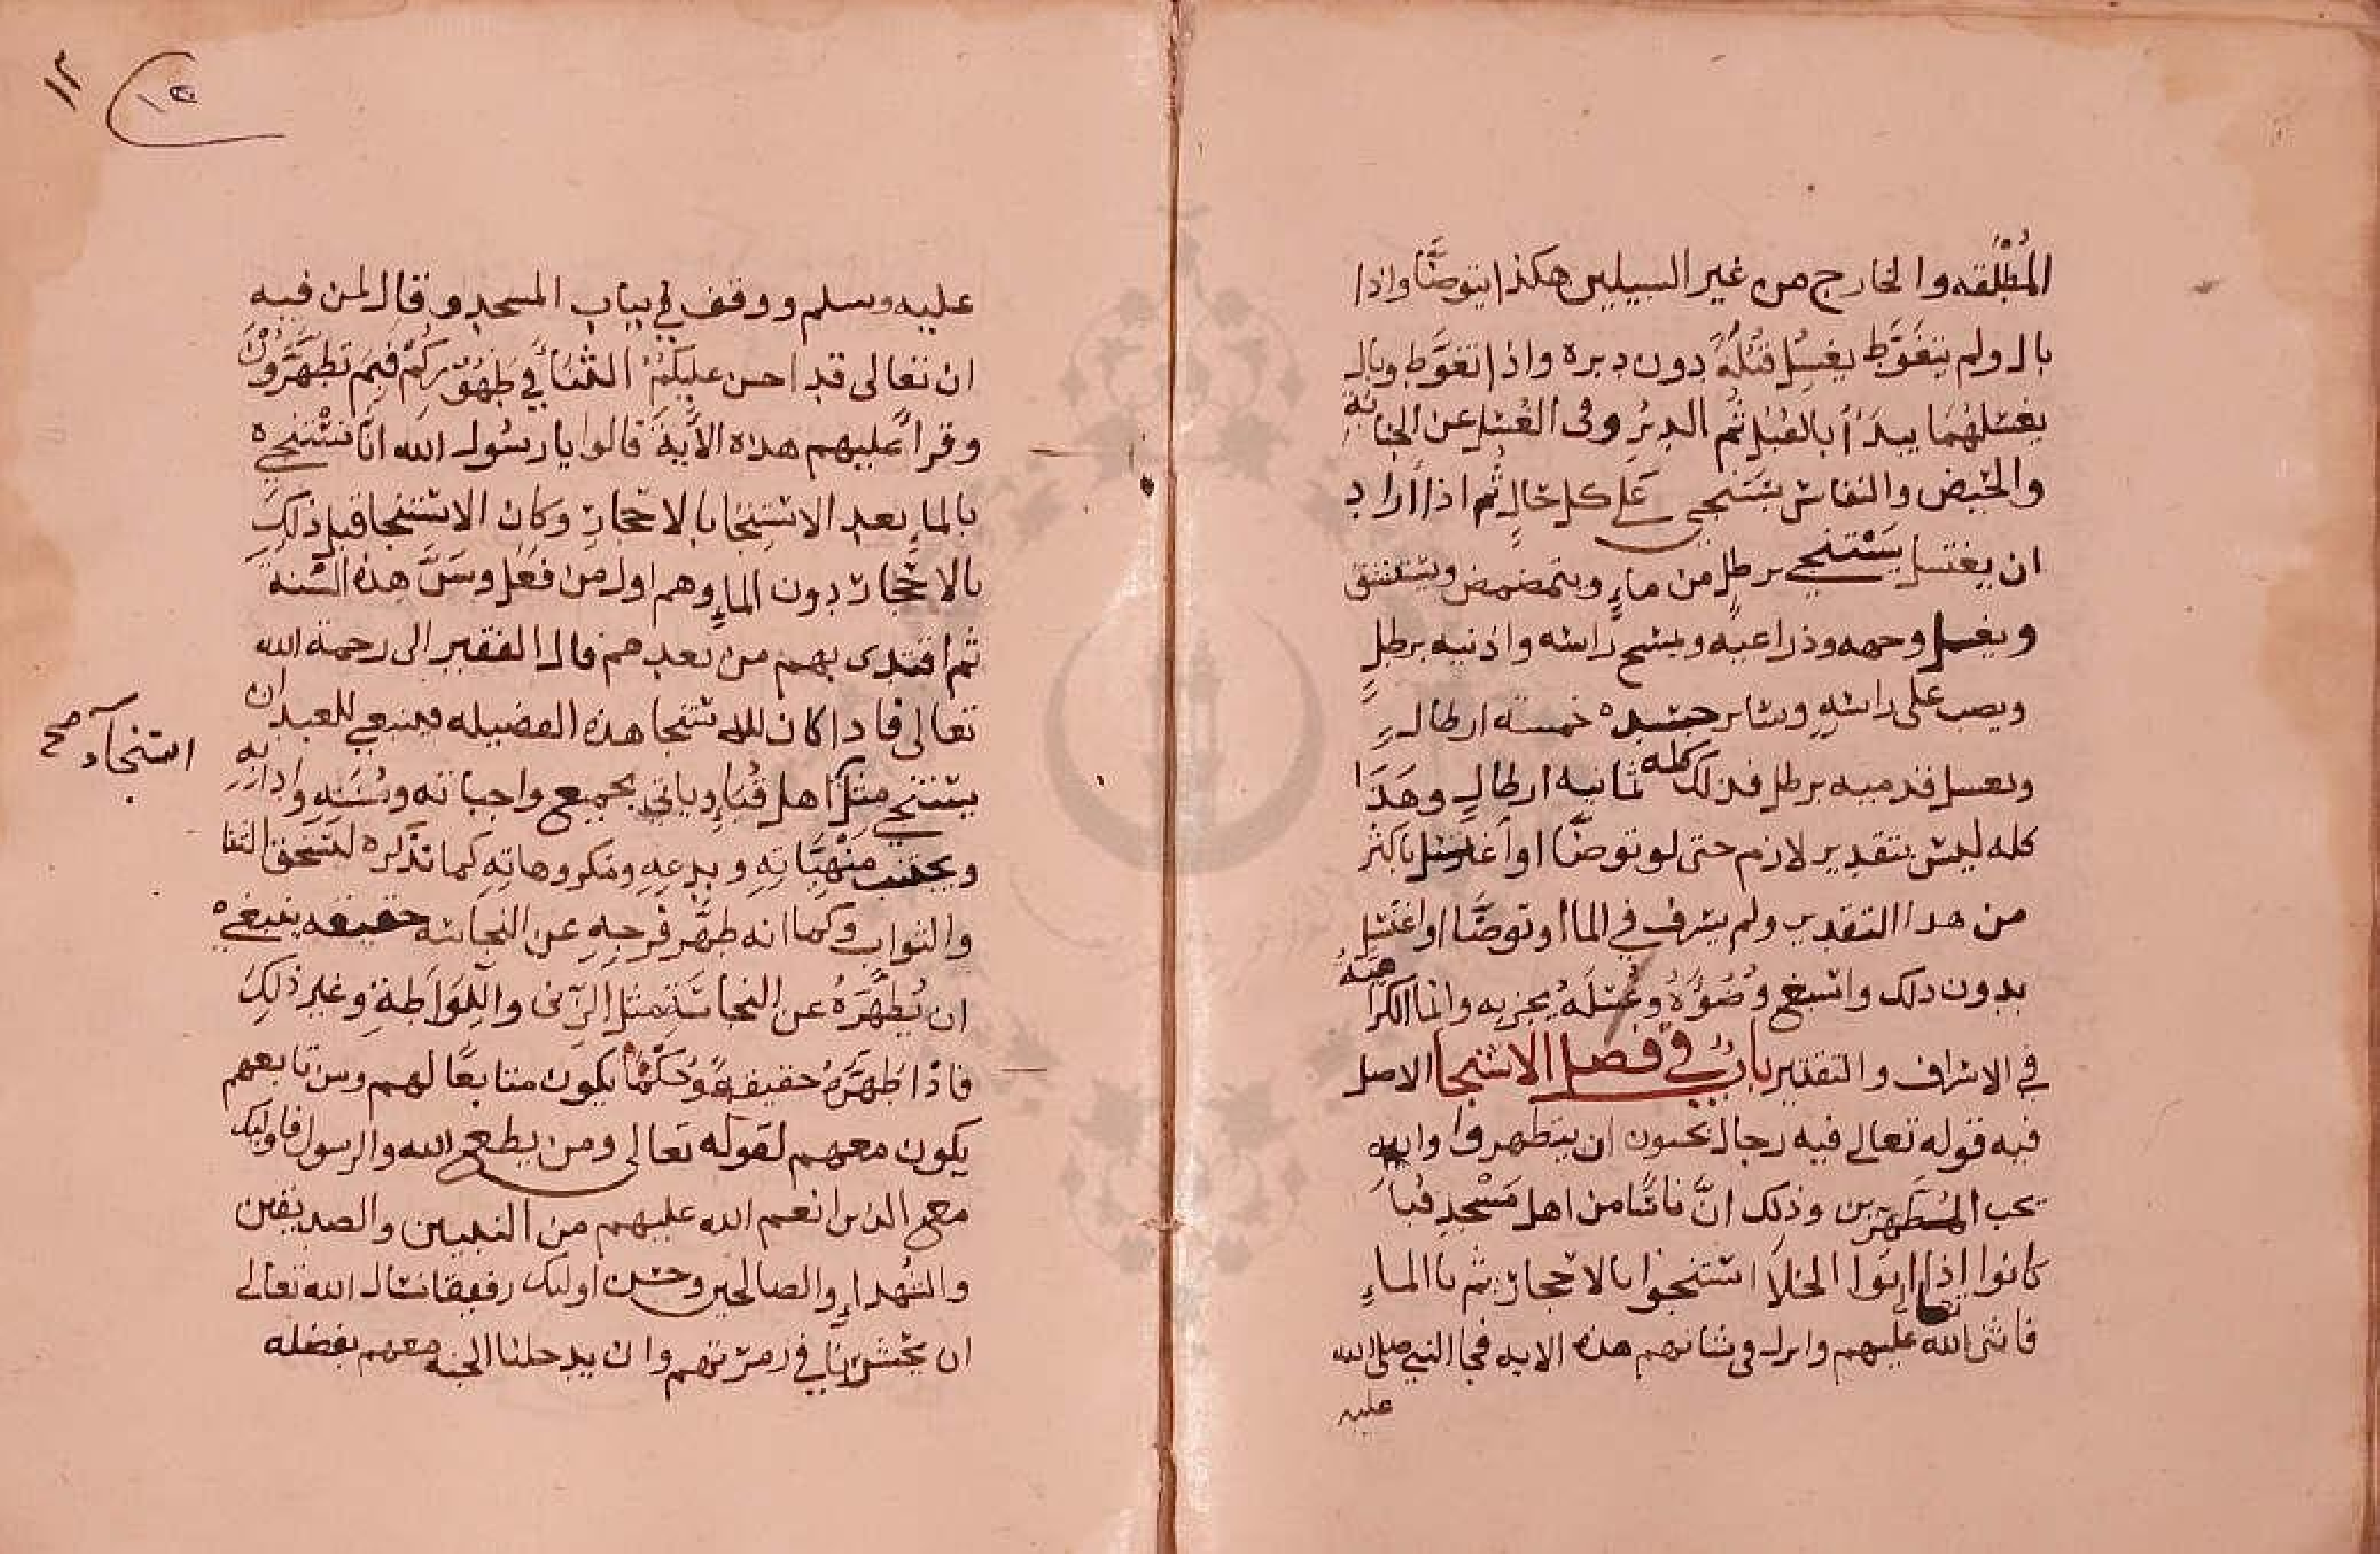 المُطْلَقه والخارج من غير السبيلين هكذا يتوضّا واذا
بال ولم يتغوّط يغسل قبُلهُ دون دبره واذا تغوّط وبال
يغسلهُمَا يبدَأ بالقُبل ثم الدبُر وفى الغُسل عن الجنابةِ
والحيض والنفاس يستنجى على كل حالٍ ثم اذا اراد
ان يغتسل يَسْتنجى برطلٍ من ماءٍ ويتمضمض ويستنشق
ويغسل وجهه وذراعيه ويمسح راسه واذنيه برطلٍ
ويصب على راسهِ وسائر جسده خمسة ارطالٍ
ويغسل قدميه برطل فذلك كله ثمانيه ارطالٍ وهَذَا
كله ليس بتقدير لازم حتى لو توضّا او اغتسل باكثر
من هذا التقدير ولم يسرف في الما او توضّا او اغتسل
بدون ذلك واسبغ وُضُوءهُ وغُسلَهُ يجزيه وانما الكراهَةُ
في الاسراف والتقتير بابٌ في فصل الاستنجا الاصل
فيه قوله تعالى فيه رجال يحبون ان يتطهروا والله
يحب المُتطهّرين وذلك انّ ناسًا من اهل مَسْجدِ قُبا
كانوا اذا اتوا الخلَاَ استنجوا بالاحجار ثم بالماءِ
فاثنى الله تعالى عليهم وانزل فى شانهم هذه الايه فجا النبي صلى الله
عليه
١٢
١٢
عليه وسلم ووقف في بباب المسجد وقال لمن فيه
ان تعالى قد احسن عليكُمْ الثنَاَ في طَهُوركُم فبم تطهّرَونَ
وقرأ عليهم هذه الاَية قالوا يا رسُول الله انّا نسْتنجى
بالماءِ بعد الاستنجا بالاحجارِ وكان الاستنجا قبل ذلكَ
بالاحجار دون الماءِ وهم اول من فعَل وسَنّ هذه السُنة
ثم اقتدى بهم من بعدهم قال الفقير الى رحمة الله
تعالى فاذا كان للاستنجا هذه الفضيله فينبغى للعبد ان
استنجآء صح
يستنجى مثل اهل قُباءِ وياتي بجميع واجباته وسُنَنِهِ وادابهِ
ويجتنب منْهيَّاتِهِ وبدعِهِ ومكروهاتِهِ كما نذكره ليستحق الثنا
والثواب وكما انه طهَّر فرجهِ عن النجاسه حقيقه ينبغي
ان يُطهّرَهُ عن النجاسَةِ مثل الزنى واللِوَاطةِ وغير ذلكَ
فاذا طَهّرَهُ حقيقةً وحُكمًا يكون متابعًا لهم ومن تابعهم
يكون معهم لقوله تعالى ومن يطع الله والرسول فاوليك
مع الذين انعم الله عليهم من النبيين والصديقين
والشُهداءِ والصالحين وحسن اوليك رفيقا نسال الله تعالى
ان يحشرنا في زمرتهم وان يدخلنا الجنه معهم بفضله